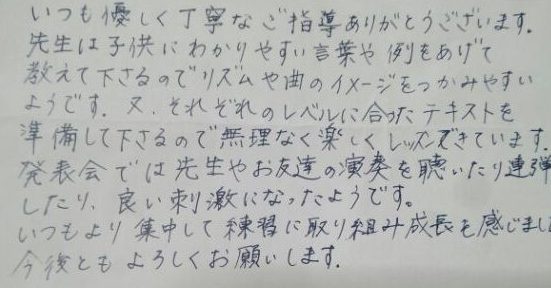 いつも優しく丁寧なご指導ありがとうございます.
先生は子供にわかりやすい言葉や例をあげて
教えて下さるのでリズムや曲のイメージをつかみやすい
ようです. 又、それぞれのレベルに合ったテキストを
準備して下さるので無理なく楽しくレッスンできています.
発表会では先生やお友達の演奏を聴いたり連弾
したり、良い刺激になったようです。
いつもより集中して練習に取り組み成長を感じまし
今後ともよろしくお願いします.